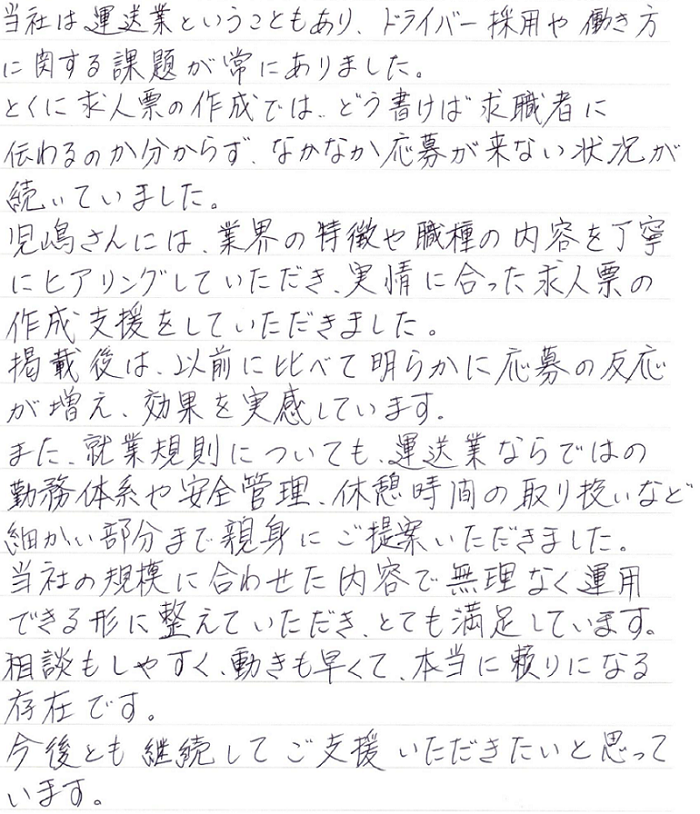 当社は運送業ということもあり、ドライバー採用や働き方
に関する課題が常にありました。
とくに求人票の作成では、どう書けば求職者に
伝わるのか分からず、なかなか応募が来ない状況が
続いていました。
児嶋さんには、業界の特徴や職種の内容を丁寧
にヒアリングしていただき、実情に合った求人票の
作成支援をしていただきました。
掲載後は、以前に比べて明らかに応募の反応
が増え、効果を実感しています。
また、就業規則についても、運送業ならではの
勤務体系や安全管理、休憩時間の取り扱いなど
細かい部分まで親身にご提案いただきました。
当社の規模に合わせた内容で無理なく運用
できる形に整えていただき、とても満足しています。
相談もしやすく、動きも早くて、本当に頼りになる
存在です。
今後とも継続してご支援いただきたいと思って
います。